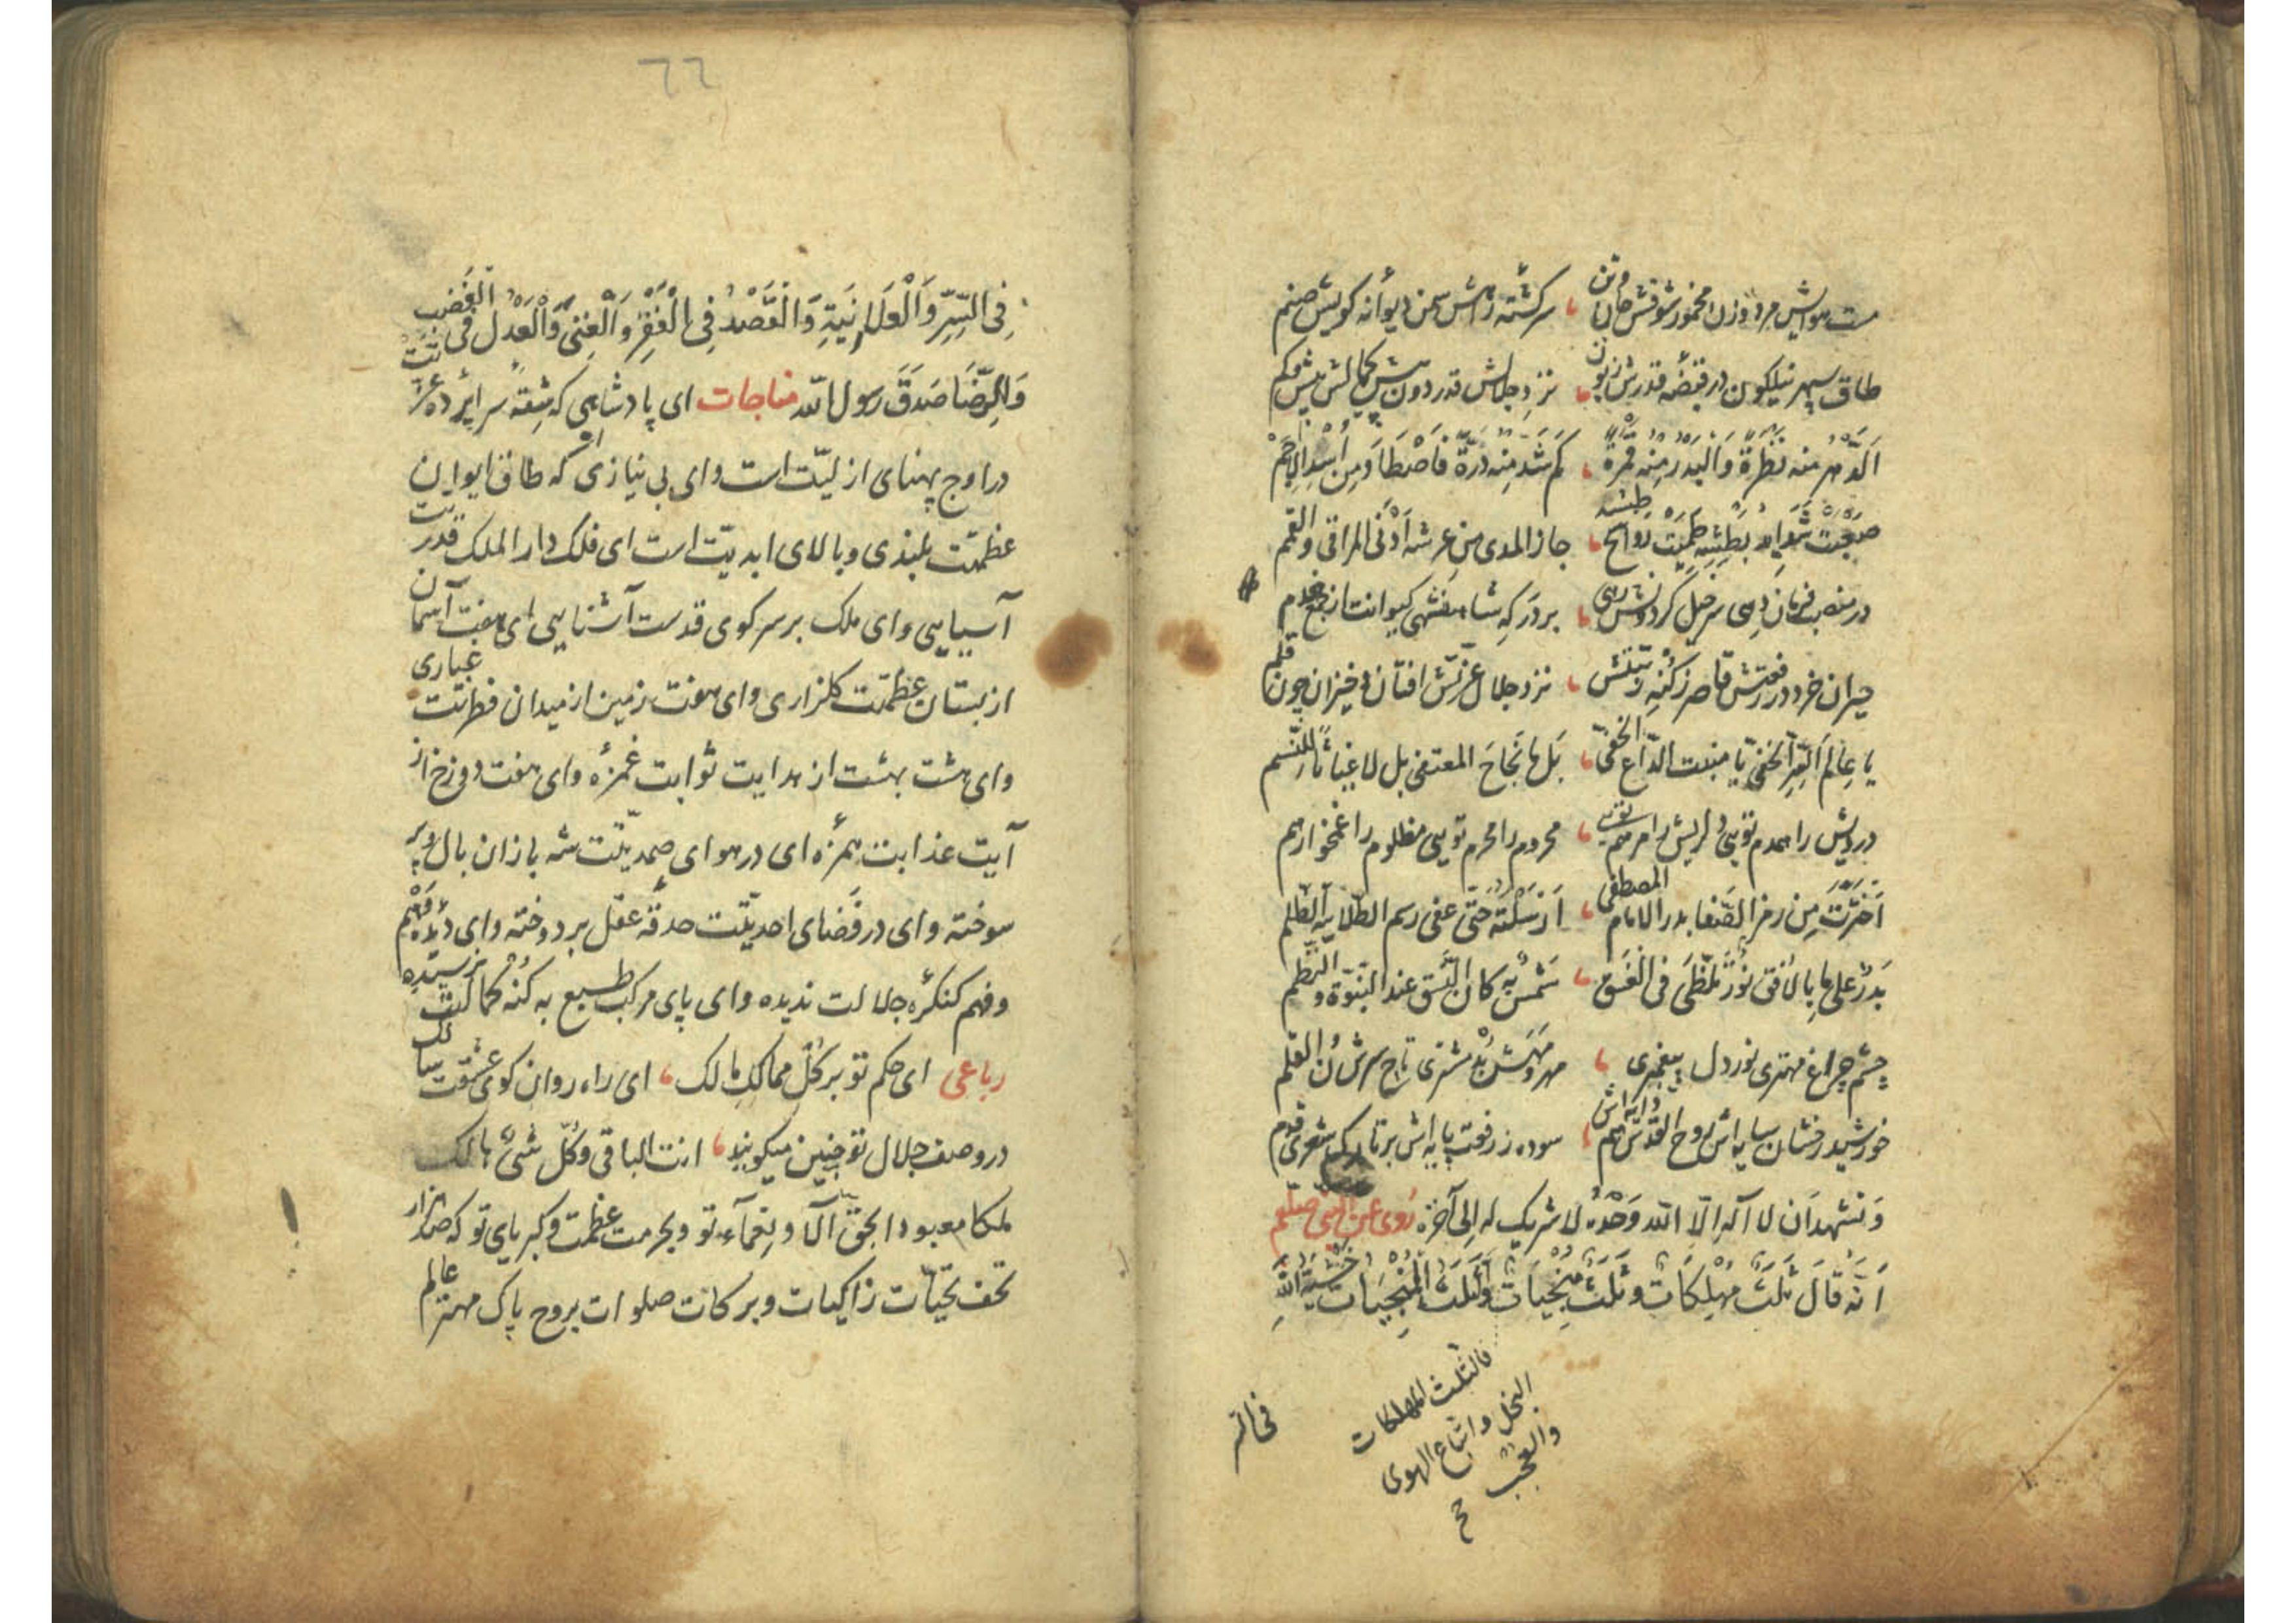 مست هوایش مرد و زن مخمور شوقش جان و تن ، سرگشته زاهش سمن دیوانه کویش صنم
طاق سپهر نیلگون در قبضه قدرش زبون ، نزد جلالش قدر دون پیش کمالش بیش و کم
الدهر منه نظرة والبدر منه قمرة ، کم شد منه درة فاصطاد من اسد الاجم
جاز المدی من عرشه ادنی المراقی والقمم
در منصب فرمان دهی سرخیل کردونش رهی ، بر درگه شاهنشهی کیوانت از جمع خدم
حیران خرد در رفعتش قاصر ز کنه رتبتش ، نزد جلال عزتش افتان و خیزان چون قلم
یا عالم السر الخفی یا منبت الداع الخفی ، بل ها نجاح المعتفی بل لا غیاثا للنسم
درویش را همدم تویی دلریش را مرهم تویی ، محروم را محرم تویی مظلوم را غمخوار هم
اخترت من رمز الصفا بدر الامام المصطفی ، ارسلته حتی عفی رسم الطلا بیه الظلم
بدر علی ها بالافق نور تلظی فی الغسق ، شمس به کان النسق عند النبوة والنظم
چشم چراغ مهتری نور دل پیغمبری ، مهر و مهش بد مشتری تاج سرش ن والقلم
خورشید رخشان سایه اش روح القدس هم دایه اش ، سوده ز رفعت پایه اش بر تارک شعری قدم
ونشهد ان لا اله الا الله وحده لا شریک له الی آخره روی عن النبی صلعم
انه قال ثلث مهلکات وثلث منجیات واما ثلث المنجیات خشیة الله
فالثلث المهلکات
البخل واتباع الهوی
والعجب
صح
فی السر
٦٦
فی السر والعلانیة والقصد فی الفقر والغنی والعدل فی الغضب
والرضا صدق رسول الله مناجات ای پادشاهی که شقه سراپرده عزتت
در اوج پهنای ازلیت است و ای بی نیازی که طاق ایوان
عظمتت بلندی و بالای ابدیت است ای فلک دار الملک قدرتت
آسیایی و ای ملک بر سر کوی قدست آشنایی ای هفت آسمان
از بستان عظمتت کلزاری و ای هفت زمین از میدان فطرتت غباری
و ای هشت بهشت از هدایت ثوابت غمزه و ای هفت دوزخ از
آیت عذابت همزه ای در هوای صمدیتت شه بازان بال و پر
سوخته و ای در فضای احدیتت حدقه عقل بر دوخته و ای دیده وهم
و فهم کنگره جلالت ندیده و ای پای مرکب طبع به کنه کمالت نرسیده
رباعی ای حکم تو بر کل ممالک مالک ، ای راه روان کوی عشقت سالک
در وصف جلال تو چنین میکویند ، انت الباقی وکل شئ هالک
ملکا معبودا بحق آلا و نعمآء تو و بحرمت عظمت و کبریای تو که صد هزار
تحف تحیات زاکیات و برکات صلوات بروح پاک مهتر عالم